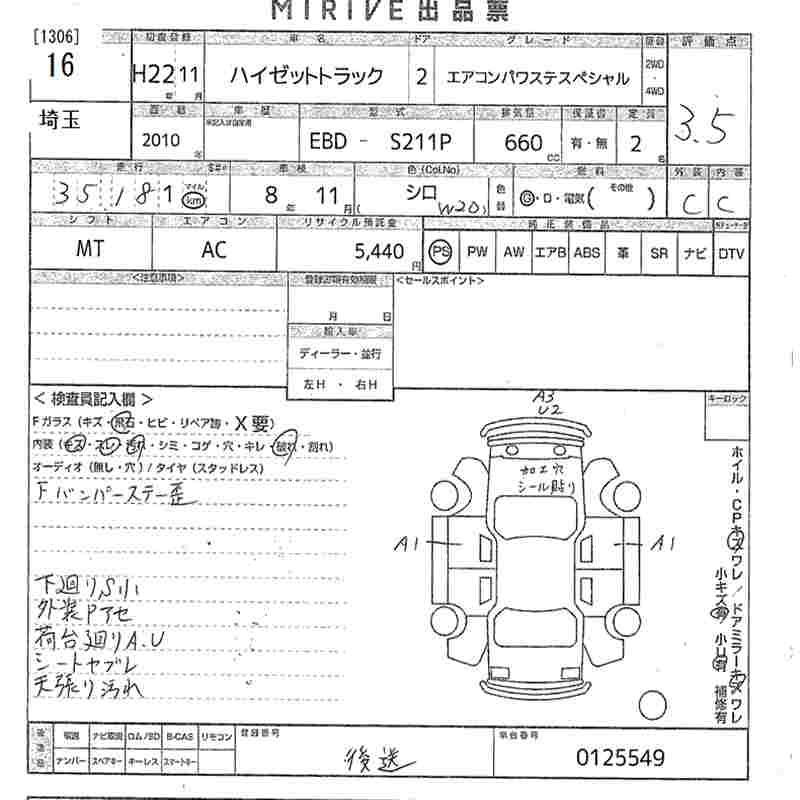 MIRIVE 出品票
[1306]
16
初度登録 車名 ドア グレード 駆動 評価点
H22 11 年 月 ハイゼットトラック 2 エアコンパワステスペシャル 2WD・4WD
3.5
埼玉
車歴 型式 排気量 保証書 定員
2010 年 EBD - S211P 660 CC 有・無 2 名
走行 車検 色(Col.No) 燃料 外装 内装
35,181 マイル km 8 年 11 月 シロ (W20) 色替 G・D・電気( その他 ) C C
シフト エアコン リサイクル預託金 純正装備品
MT AC 5,440 円 PS PW AW エアB ABS 革 SR ナビ DTV
<注意事項> <セールスポイント>
月 日
輸入車
ディーラー・並行
左H ・ 右H
< 検査員記入欄 > キーロック
A3
U2
Fガラス (キズ・飛石・ヒビ・リペア跡・X要)
内装 (キズ・スレ・汚れ・シミ・コゲ・穴・キレ・破れ・割れ)
オーディオ (無し・穴) / タイヤ (スタッドレス)
Fバンパーステー歪
加工穴
シール貼り
A1 A1
下廻り,S小
外装Pアセ
荷台廻りA.U
シートヤブレ
天張り汚れ
ホイル・CPキズワレ / ドアミラーキズワレ
小キズ有 小U有 補修有
後送品 取説 ナビ取説 ロム/SD B-CAS リモコン 登録番号 車台番号
ナンバー スペアキー キーレス スマートキー 後送 0125549